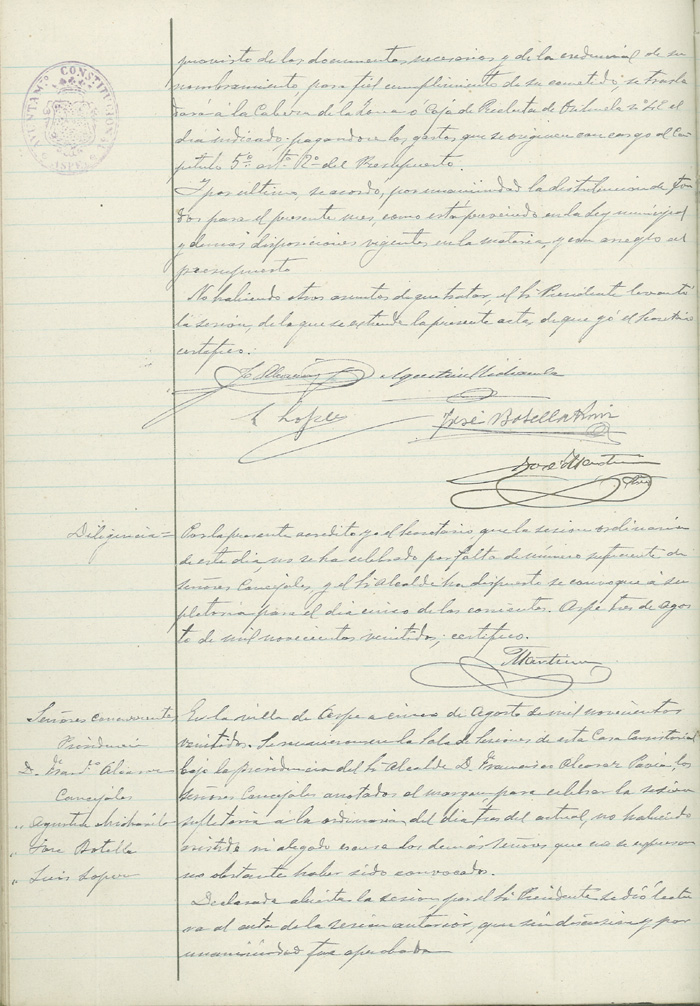 AYUNTAMTO CONSTITUCIONAL
ASPE
provisto de los documentos necesarios y de la credencial de su
nombramiento para fiel cumplimiento de su cometido, se trasla
dará á la Cabeza de la Zona ó Caja de Recluta de Orihuela nº 42 el
dia indicado, pagandose los gastos que se originen con cargo al Ca-
pitulo 5º artº 2º del Presupuesto.
Y por ultimo, se acordó, por unanimidad la distribucion de fon
dos para el presente mes, como está prevenido en la ley municipal
y demás disposiciones vigentes en la materia, y con arreglo al
presupuesto
No habiendo otros asuntos de que tratar, el Sr Presidente levantó
la sesion, de la que se extiende la presente acta, de que yó el Secretario
certifico.
Fco Alcaraz Agustin Mirambell
L Lopez José Botella
José Martin
Diligencia= Por la presente acredito yo el Secretario que la sesion ordinaria
de este dia, no se ha celebrado por falta de número suficiente de
señores Concejales, y el Sr Alcalde ha dispuesto se convoque á su
pletoria para el dia cinco de los corrientes. Aspe tres de Agos
to de mil novecientos veintidos, certifico.
JMartin
Señores concurrentes
Presidencia
D. Francº Alcaraz
Concejales
" Agustin
" Jose Botella
" Luis Lopez
En la villa de Aspe a cinco de Agosto de mil novecientos
veintidos. Se reunieron en la Sala de Sesiones de esta Casa Consistorial
bajo la presidencia del Sr Alcalde D. Francisco Alcaraz Pavía los
señores Concejales anotados al margen para celebrar la sesion
supletoria a la ordinaria del dia tres del actual, no habiendo
asistido ni alegado escusa los demás señores que no se expresan
no obstante haber sido convocados.
Declarada abierta la sesion por el Sr Presidente se dió lectu
ra al acta de la sesion anterior, que sin discusion y por
unanimidad fue aprobada